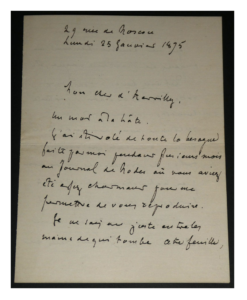 29 rue de Moscou
Lundi 25 Janvier 1875
Mon cher d'Hervilly,
Un mot à la hâte.
J'ai été volé de toute la besogne
faite par moi pendant plusieurs mois
au journal de Modes où vous aviez
été assez charmant pour me
permettre de vous reproduire.
Je ne sais au juste entre les
mains de qui tombe cette feuille,